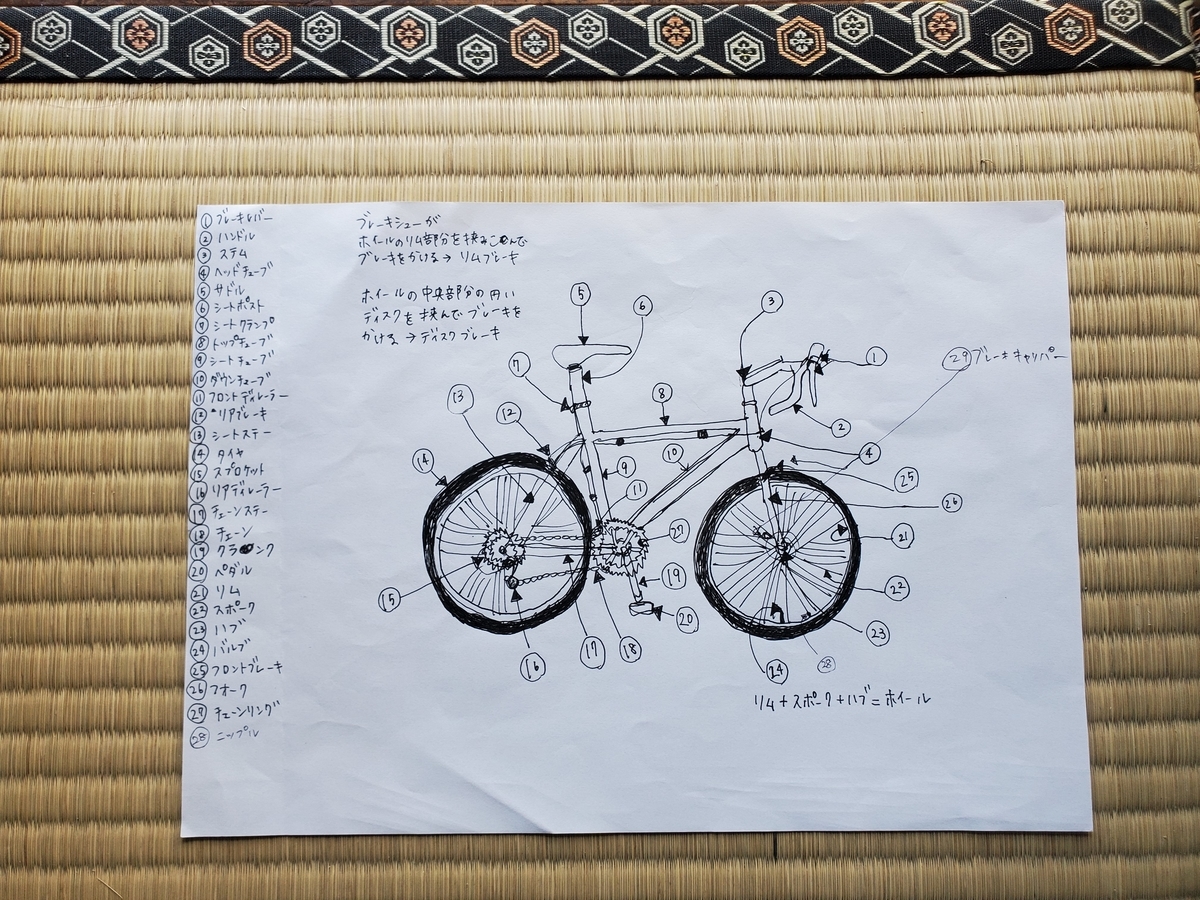 ① ブレーキレバー
② ハンドル
③ ステム
④ ヘッドチューブ
⑤ サドル
⑥ シートポスト
⑦ シートクランプ
⑧ トップチューブ
⑨ シートチューブ
⑩ ダウンチューブ
⑪ フロントディレーラー
⑫ リアブレーキ
⑬ シートステー
⑭ タイヤ
⑮ スプロケット
⑯ リアディレーラー
⑰ チェーンステー
⑱ チェーン
⑲ クランク
⑳ ペダル
㉑ リム
㉒ スポーク
㉓ ハブ
㉔ バルブ
㉕ フロントブレーキ
㉖ フォーク
㉗ チェーンリング
㉘ ニップル
ブレーキシューが
ホイールのリム部分を挟みこんで
ブレーキをかける→リムブレーキ
ホイールの中央部分の円い
ディスクを挟んでブレーキを
かける→ディスクブレーキ
⑤
⑥
③
⑦
①
㉙ブレーキキャリパー
⑧
⑬
⑫
②
⑭
⑨
⑩
④
⑪
㉕
㉖
㉗
㉑
⑮
⑲
㉒
⑳
㉓
⑯
⑰
⑱
㉔
㉘
リム+スポーク+ハブ=ホイール